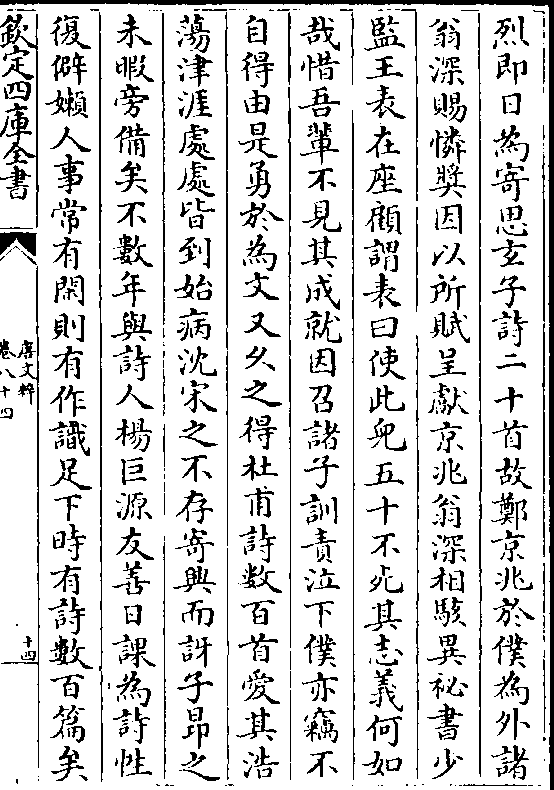 烈即日為寄思玄子詩二十首故鄭京兆於僕為外諸
翁深賜憐獎因以所賦呈獻京兆翁深相駭異祕書少
監王表在座顧謂表曰使此兒五十不死其志義何如
哉惜吾輩不見其成就因召諸子訓責泣下僕亦竊不
自得由是勇於為文又久之得杜甫詩數百首愛其浩
蕩津涯處處皆到始病沈宋之不存寄興而訝子昂之
未暇旁備矣不數年與詩人楊巨源友善日課為詩性
復僻嬾人事常有閑則有作識足下時有詩數百篇矣
欽定四庫全書
唐文粹
卷八十四
十四